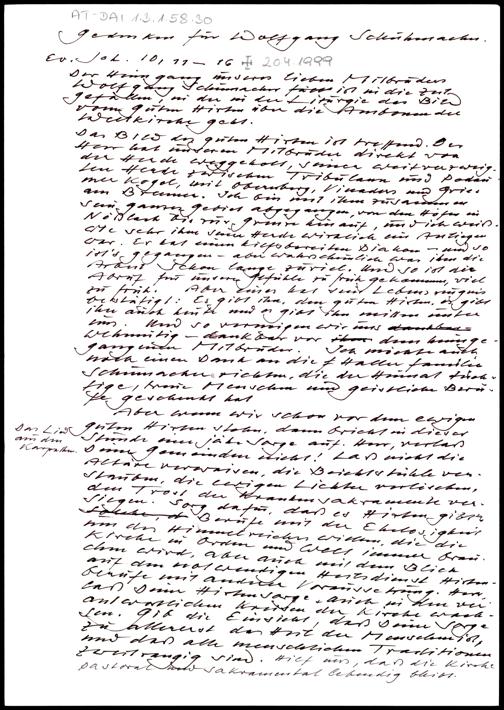 AT-DAI 1.3.1.58.30
Gedenken für Wolfgang Schuhmacher.
Ev. Joh. 10, 11 – 16 20.4.1999
Der Heimgang unseres lieben Mitbruders
Wolfgang Schumacher fällt in die Zeit
in der in der Liturgie das Bild
vom guten Hirten über die Ambonen der
Weltkirche geht.
Das Bild des guten Hirten ist treffend. Der
Herr hat unseren Mitbruder direkt von
der Herde weggeholt, seiner
Herde zwischen Tribulaun und
Kogel, mit Obernberg, Vinaders und Gries
am Brenner. Ich bin mit ihm zusammen
sein ganzes Gebiet abgegangen, von den Höfen in
Nößlach bis zur Grenze hinauf, und ich weiß
wie sehr ihm seine Herde wirklich ein Anliegen
war. Er hat einen Diakon – und so
ist's gegangen – aber wahrscheinlich war ihm die
Arbeit schon lange zuviel. Und so ist der
Abruf für unser Gefühl zu früh gekommen, viel
zu früh. Aber eines hat sein Leben
bestätigt: Es gibt ihn, den guten Hirten, es gibt
ihn auch heute und es gibt ihn mitten unter
uns. Und so verneigen wir uns
wehmütig – dankbar vor dem heimge-
gangenen Mitbruder. Ich möchte auch
noch einen Dank an die Haller Familie
Schumacher richten, die der Heimat tüch-
tige, treue Menschen und geistliche Beru-
fe geschenkt hat
Aber wenn wir schon vor dem ewigen
guten Hirten stehn, dann bricht in dieser
Stunde eine jähe Sorge auf. Herr, verlaß
Deine Gemeinden nicht! Laß nicht die
Altäre verwaisen, die Beichtstühle ver-
stauben, die ewigen Lichter verlöschen,
den Trost der Krankensakramente ver-
siegen. Sorg dafür, daß es Hirten gibt
Berufe mit der Ehelosigkeit
um des Himmelreiches willen, die die
Kirche in Orden und Welt immer brau-
chen wird, aber auch mit dem Blick
auf den notwendigen Heilsdienst Hirten-
berufe mit anderer Voraussetzung. Herr,
laß Deine Hirtensorge auch in den ver-
antwortlichen Kreisen der Kirche wach-
sen. Gib die Einsicht, daß Deine Sorge
zu allererst das Heil der Menschen ist,
und daß alle menschlichen Traditionen
zweitrangig sind. Hilf uns, daß die Kirche
pastoral und sakramental lebendig bleibt.
Das Lied
aus den
Karpaten.